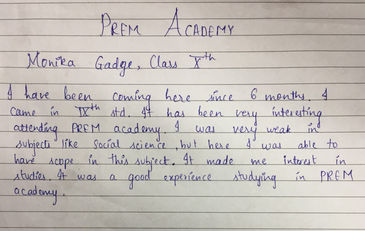 PREM ACADEMY
Monika Gadge, Class Xth
I have been coming here since 6 months. I
came in IXth std. It has been very interesting
attending PREM academy. I was very weak in
subjects like Social science, but here I was able to
have scope in this subject. It made me interest in
studies. It was a good experience studying in PREM
academy.